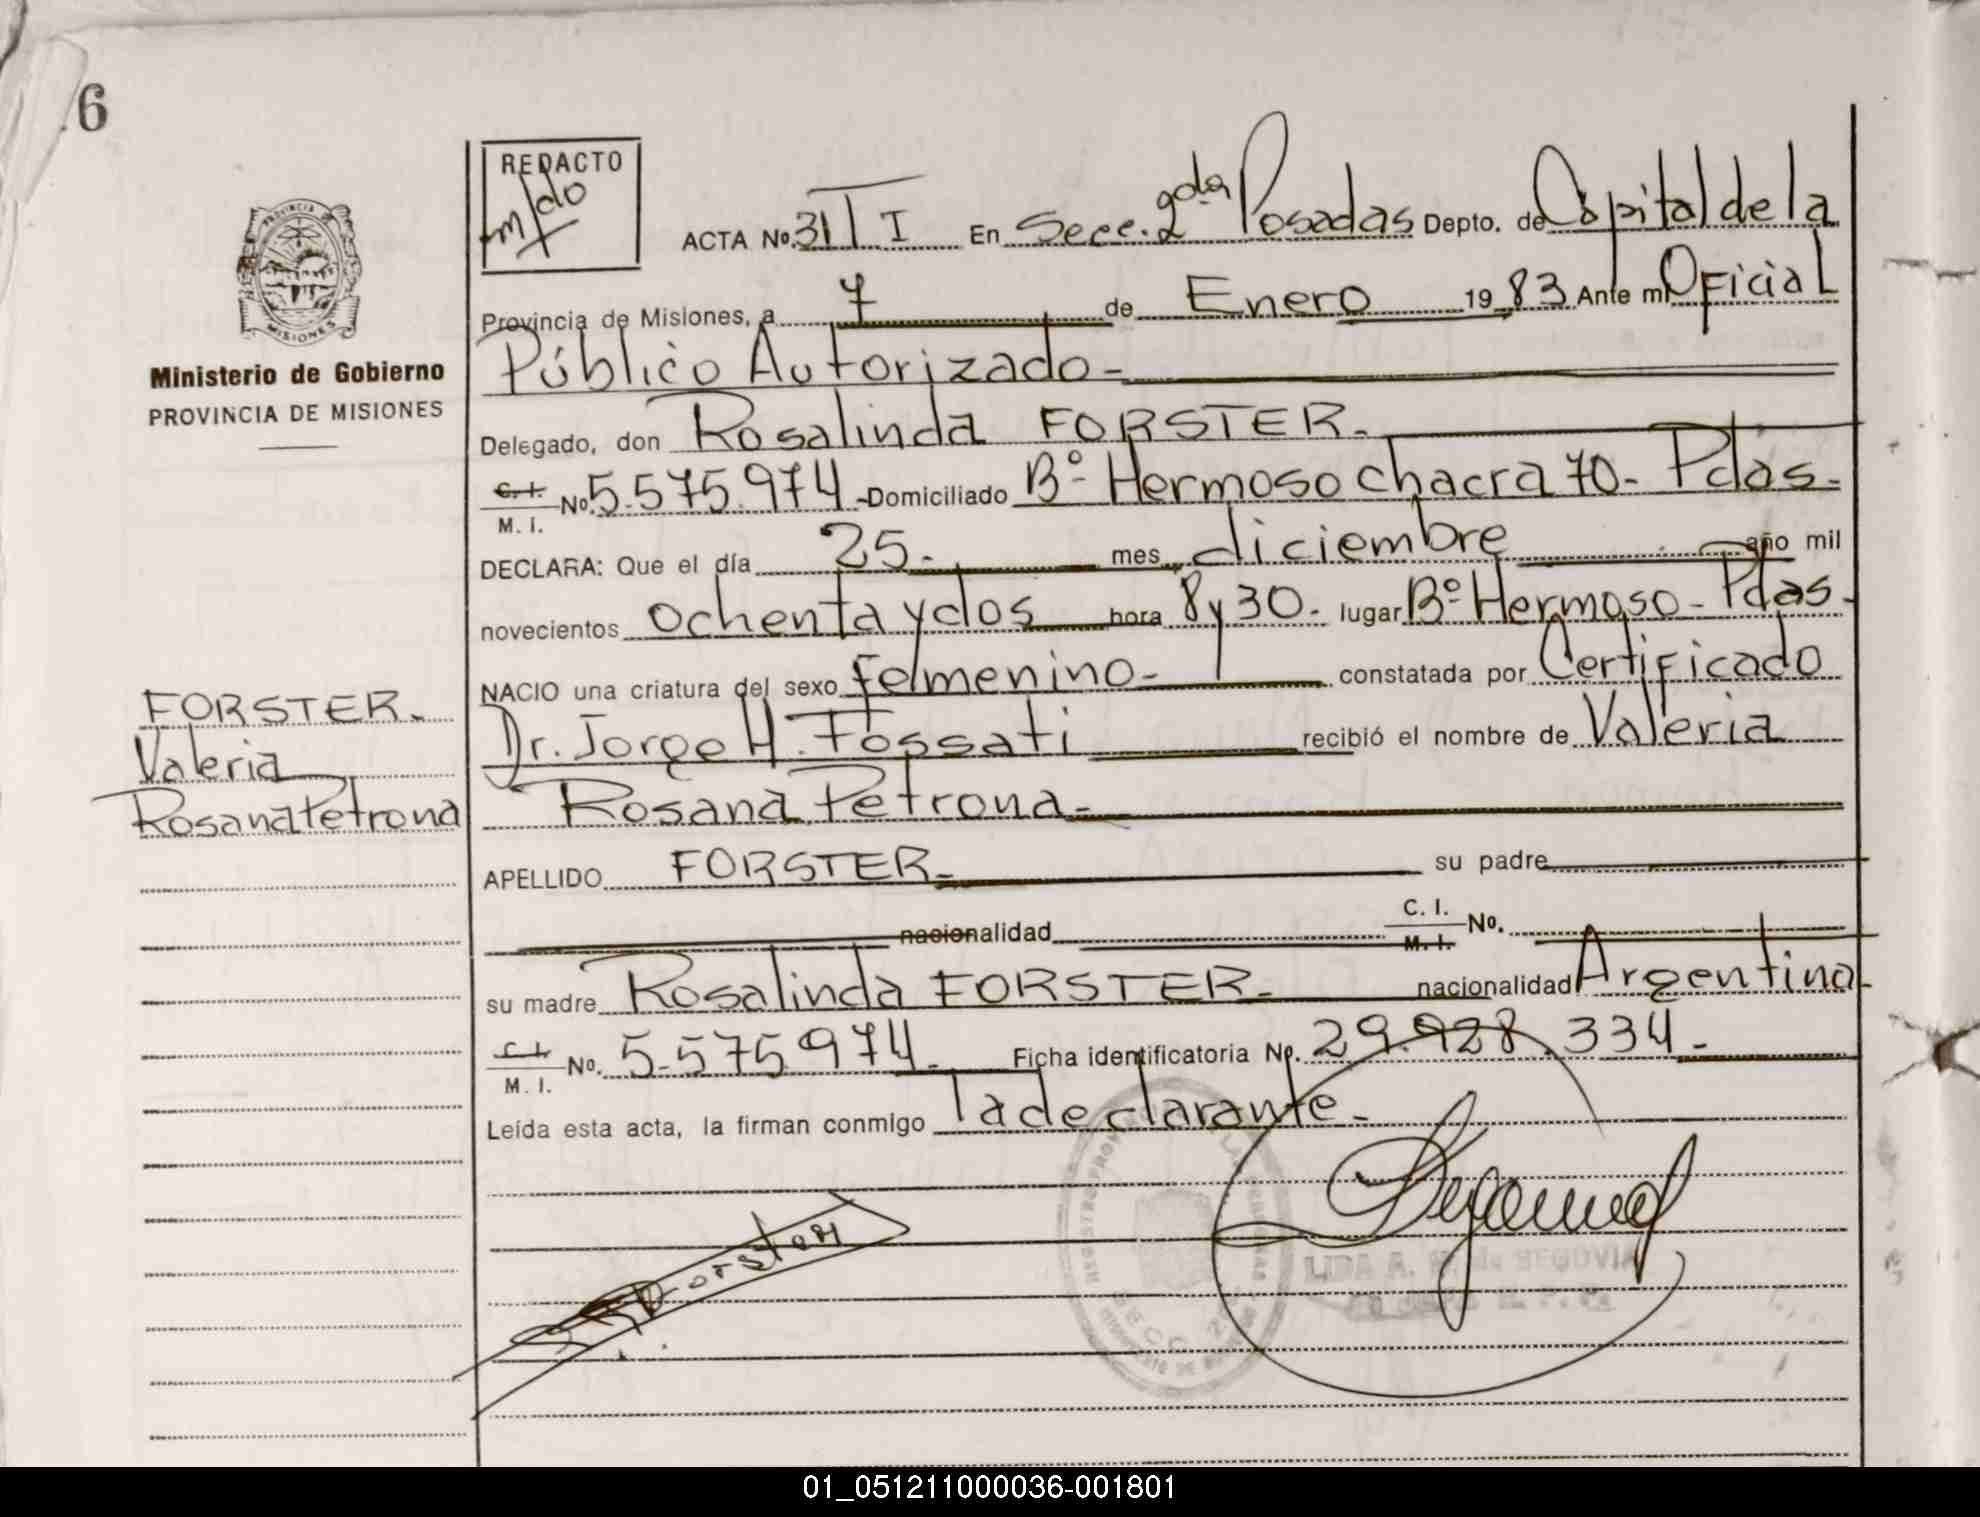 6
REDACTO
PROVINCIA
MISIONES
Ministerio de Gobierno
PROVINCIA DE MISIONES
ACTA No. 31 T I En Secc. 2da Posadas Depto. de Capital de la
Provincia de Misiones, a 7 de Enero 1983 Ante mi Oficial
Público Autorizado-
Delegado, don Rosalinda FORSTER.
C. I. M. I. No. 5.575.974 - Domiciliado Bº Hermoso chacra 70- Pdas.
DECLARA: Que el día 25- mes diciembre año mil
novecientos ochenta y dos hora 8 y 30. lugar Bº Hermoso- Pdas.
NACIO una criatura del sexo femenino- constatada por Certificado
Dr. Jorge H. Fossati recibió el nombre de Valeria
Rosana Petrona-
APELLIDO FORSTER- su padre
nacionalidad C. I. M. I. No.
su madre Rosalinda FORSTER- nacionalidad Argentina
C. I. M. I. No. 5.575.974. Ficha identificatoria No. 29.928.334-
Leída esta acta, la firman conmigo la declarante-
FORSTER.
Valeria
Rosana Petrona
Forster
LIDA A. de SEGOVIA
01_051211000036-001801